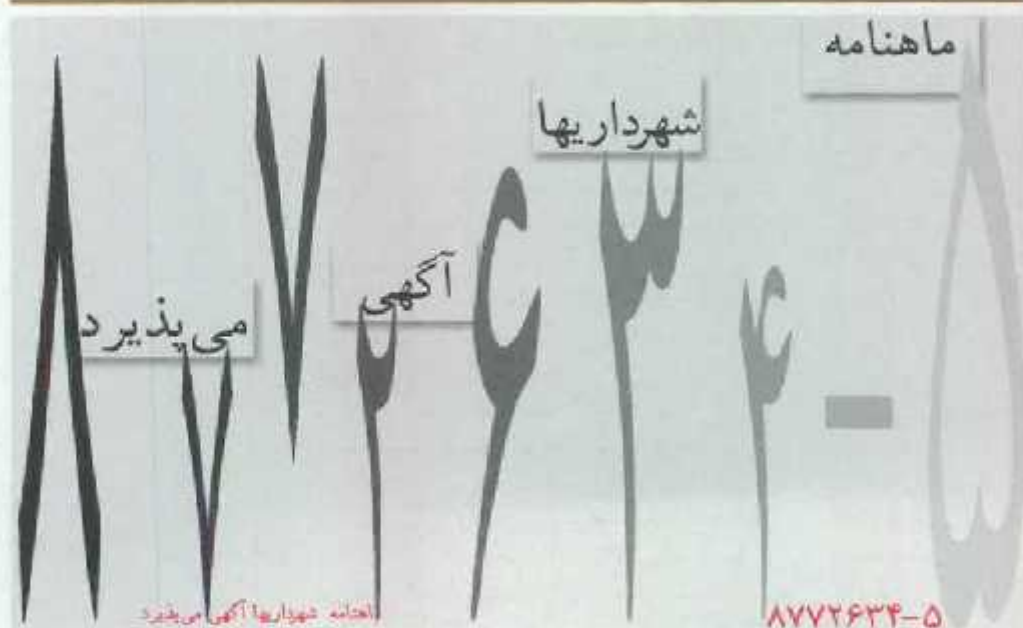 ماهنامه
شهرداریها
آگهی
می‌پذیرد
۸۷۷۲۶۳۴-۵
ماهنامه شهرداریها آگهی می‌پذیرد
۸۷۷۲۶۳۴-۵